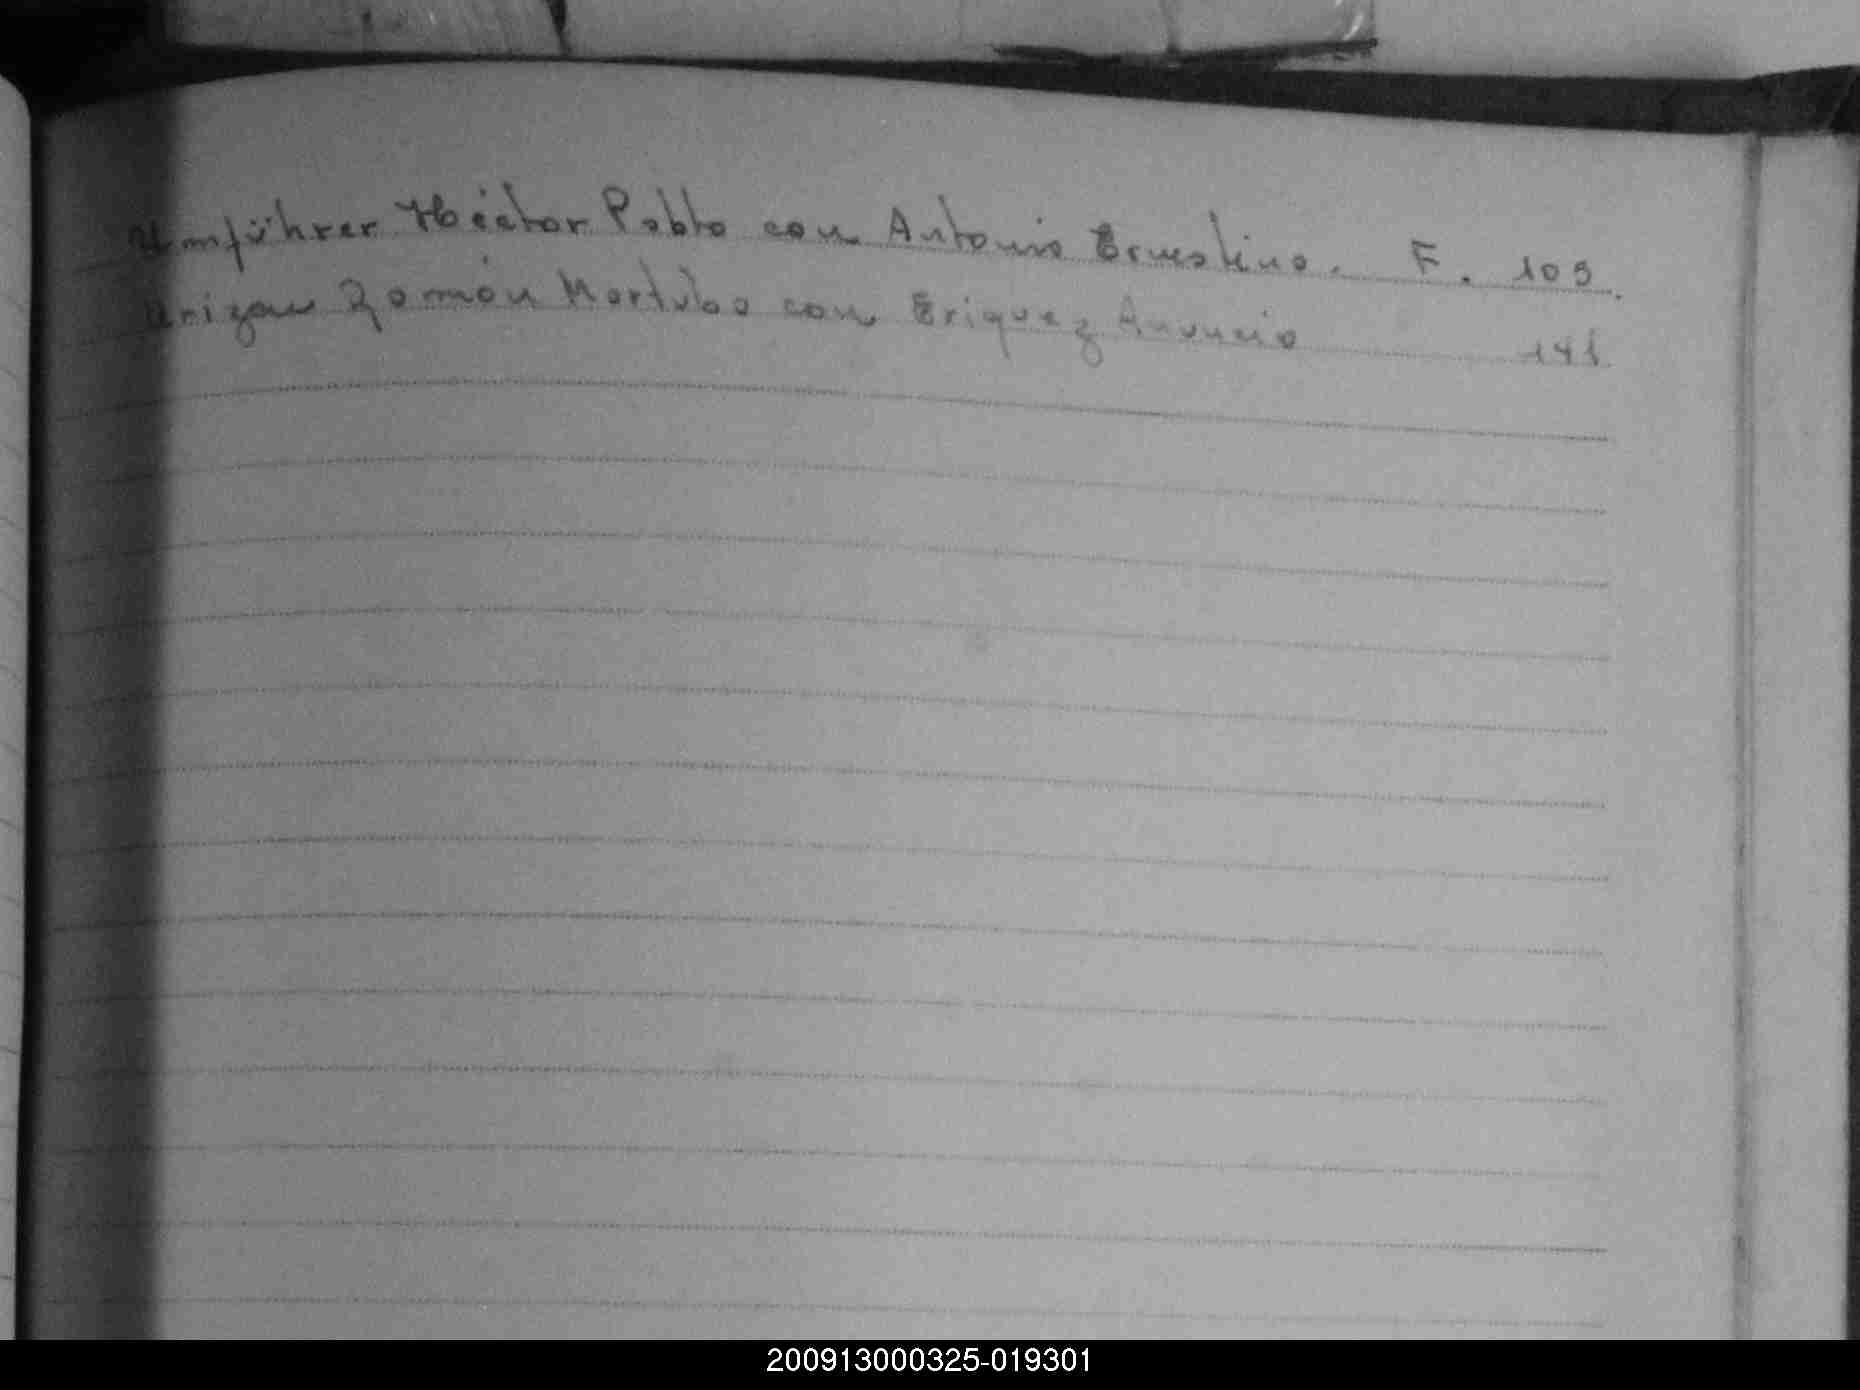 Umführer Héctor Pablo con Antonia Ernestina. F. 109.
Urizan Ramón con Eriquez Anuncia 141
200913000325-019301